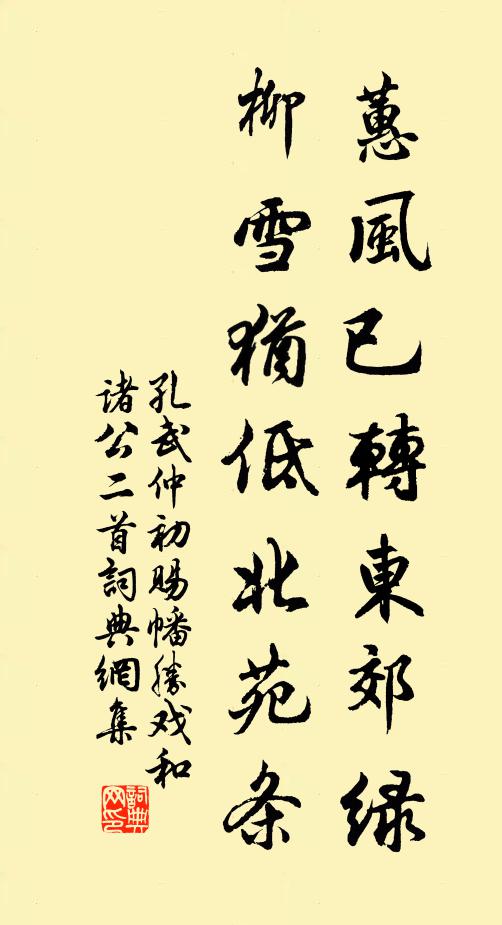 蕙風已轉東郊緑
柳雪猶低北苑条
孔武仲初賜幡勝戏和
诸公二首詞典網集
詞典网印